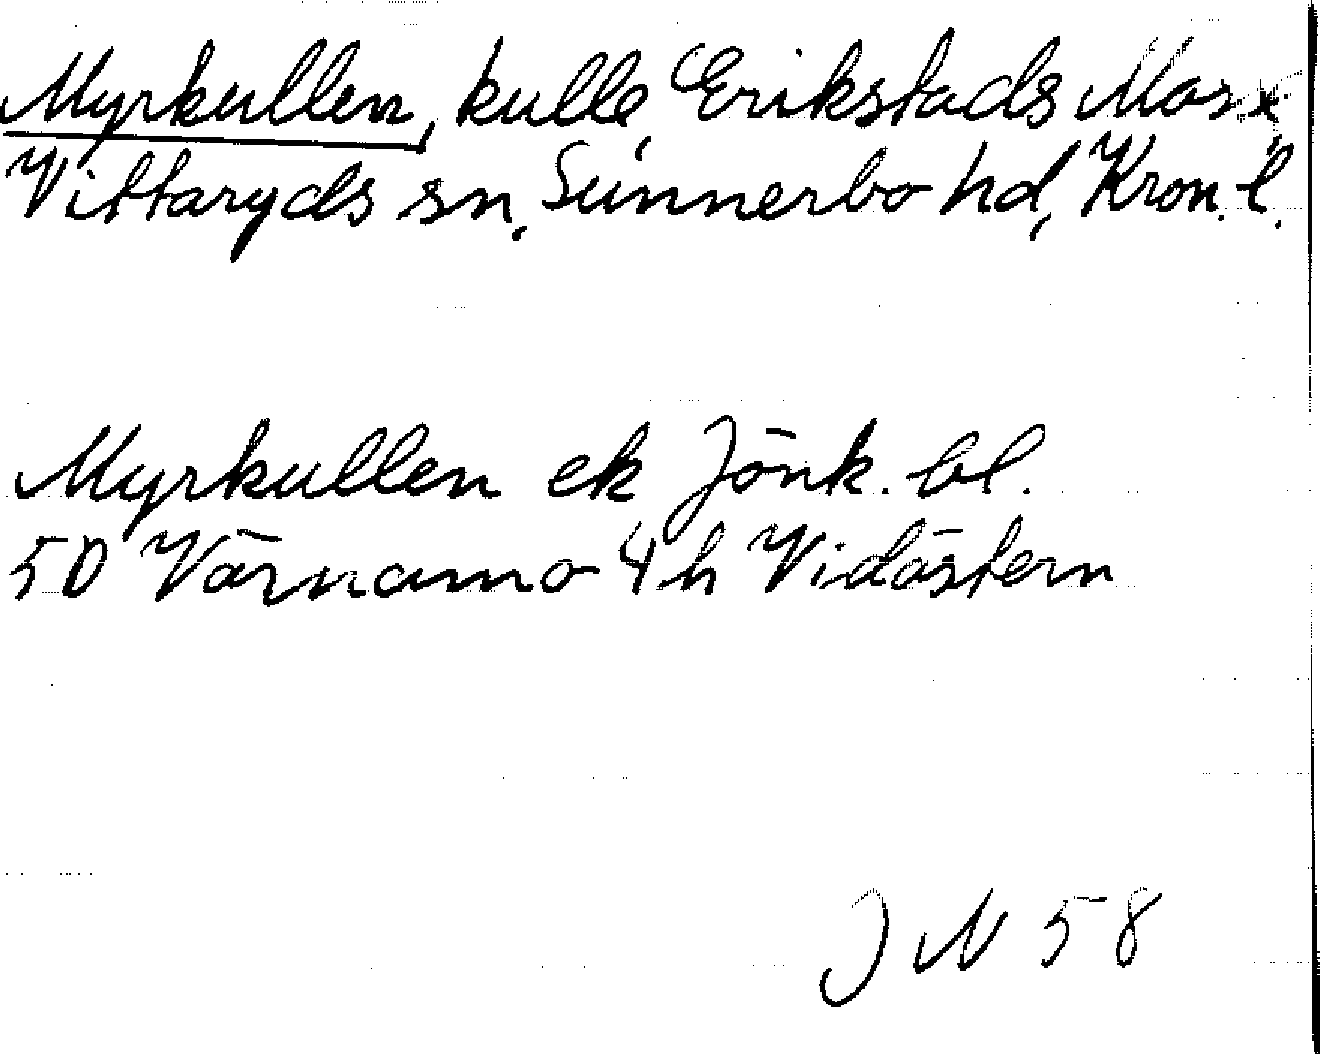 Myrkullen, kulle, Erikstads Mosse,
Vittaryds sn, Sunnerbo hd, Kron. l.
Myrkullen ek Jönk. bl.
5D Värnamo 4h Vidöstern
JN 58